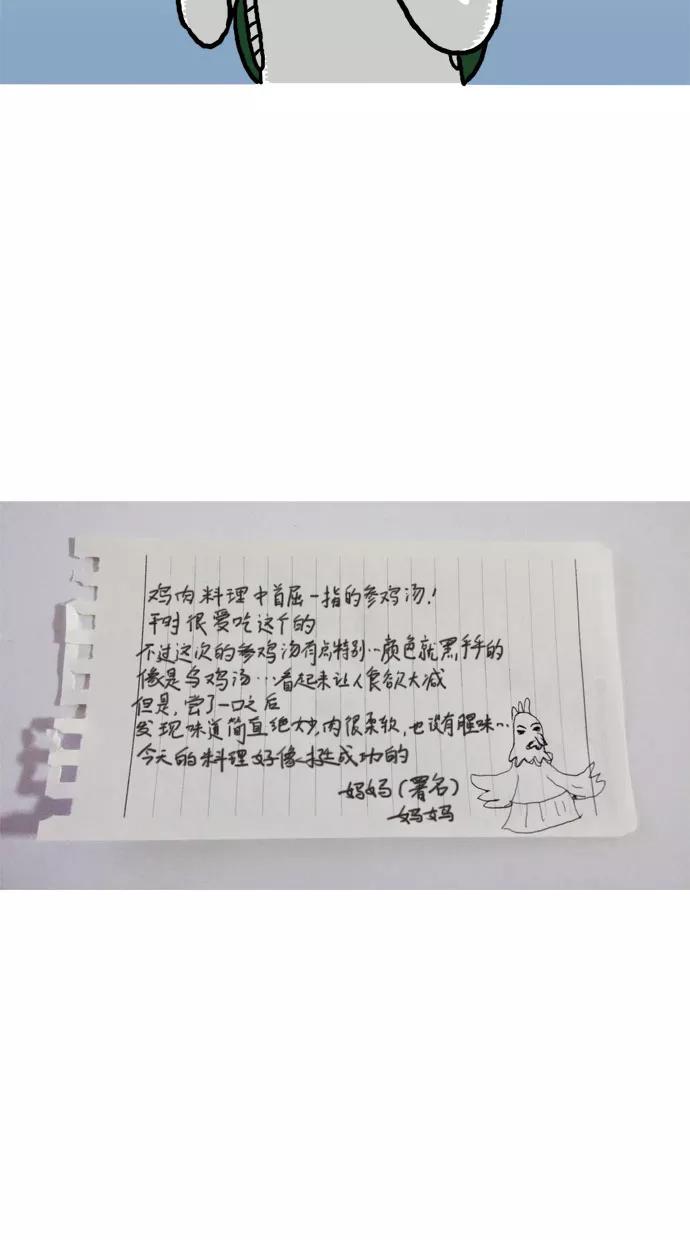 鸡肉料理中首屈一指的参鸡汤!
平时很爱吃这个的
不过这次的参鸡汤有点特别…颜色就黑乎乎的
像是乌鸡汤…看起来让人食欲大减
但是,尝了一口之后
发现味道简直绝妙,肉很柔软,也没有腥味…
今天的料理好像挺成功的
妈妈(署名)
妈妈